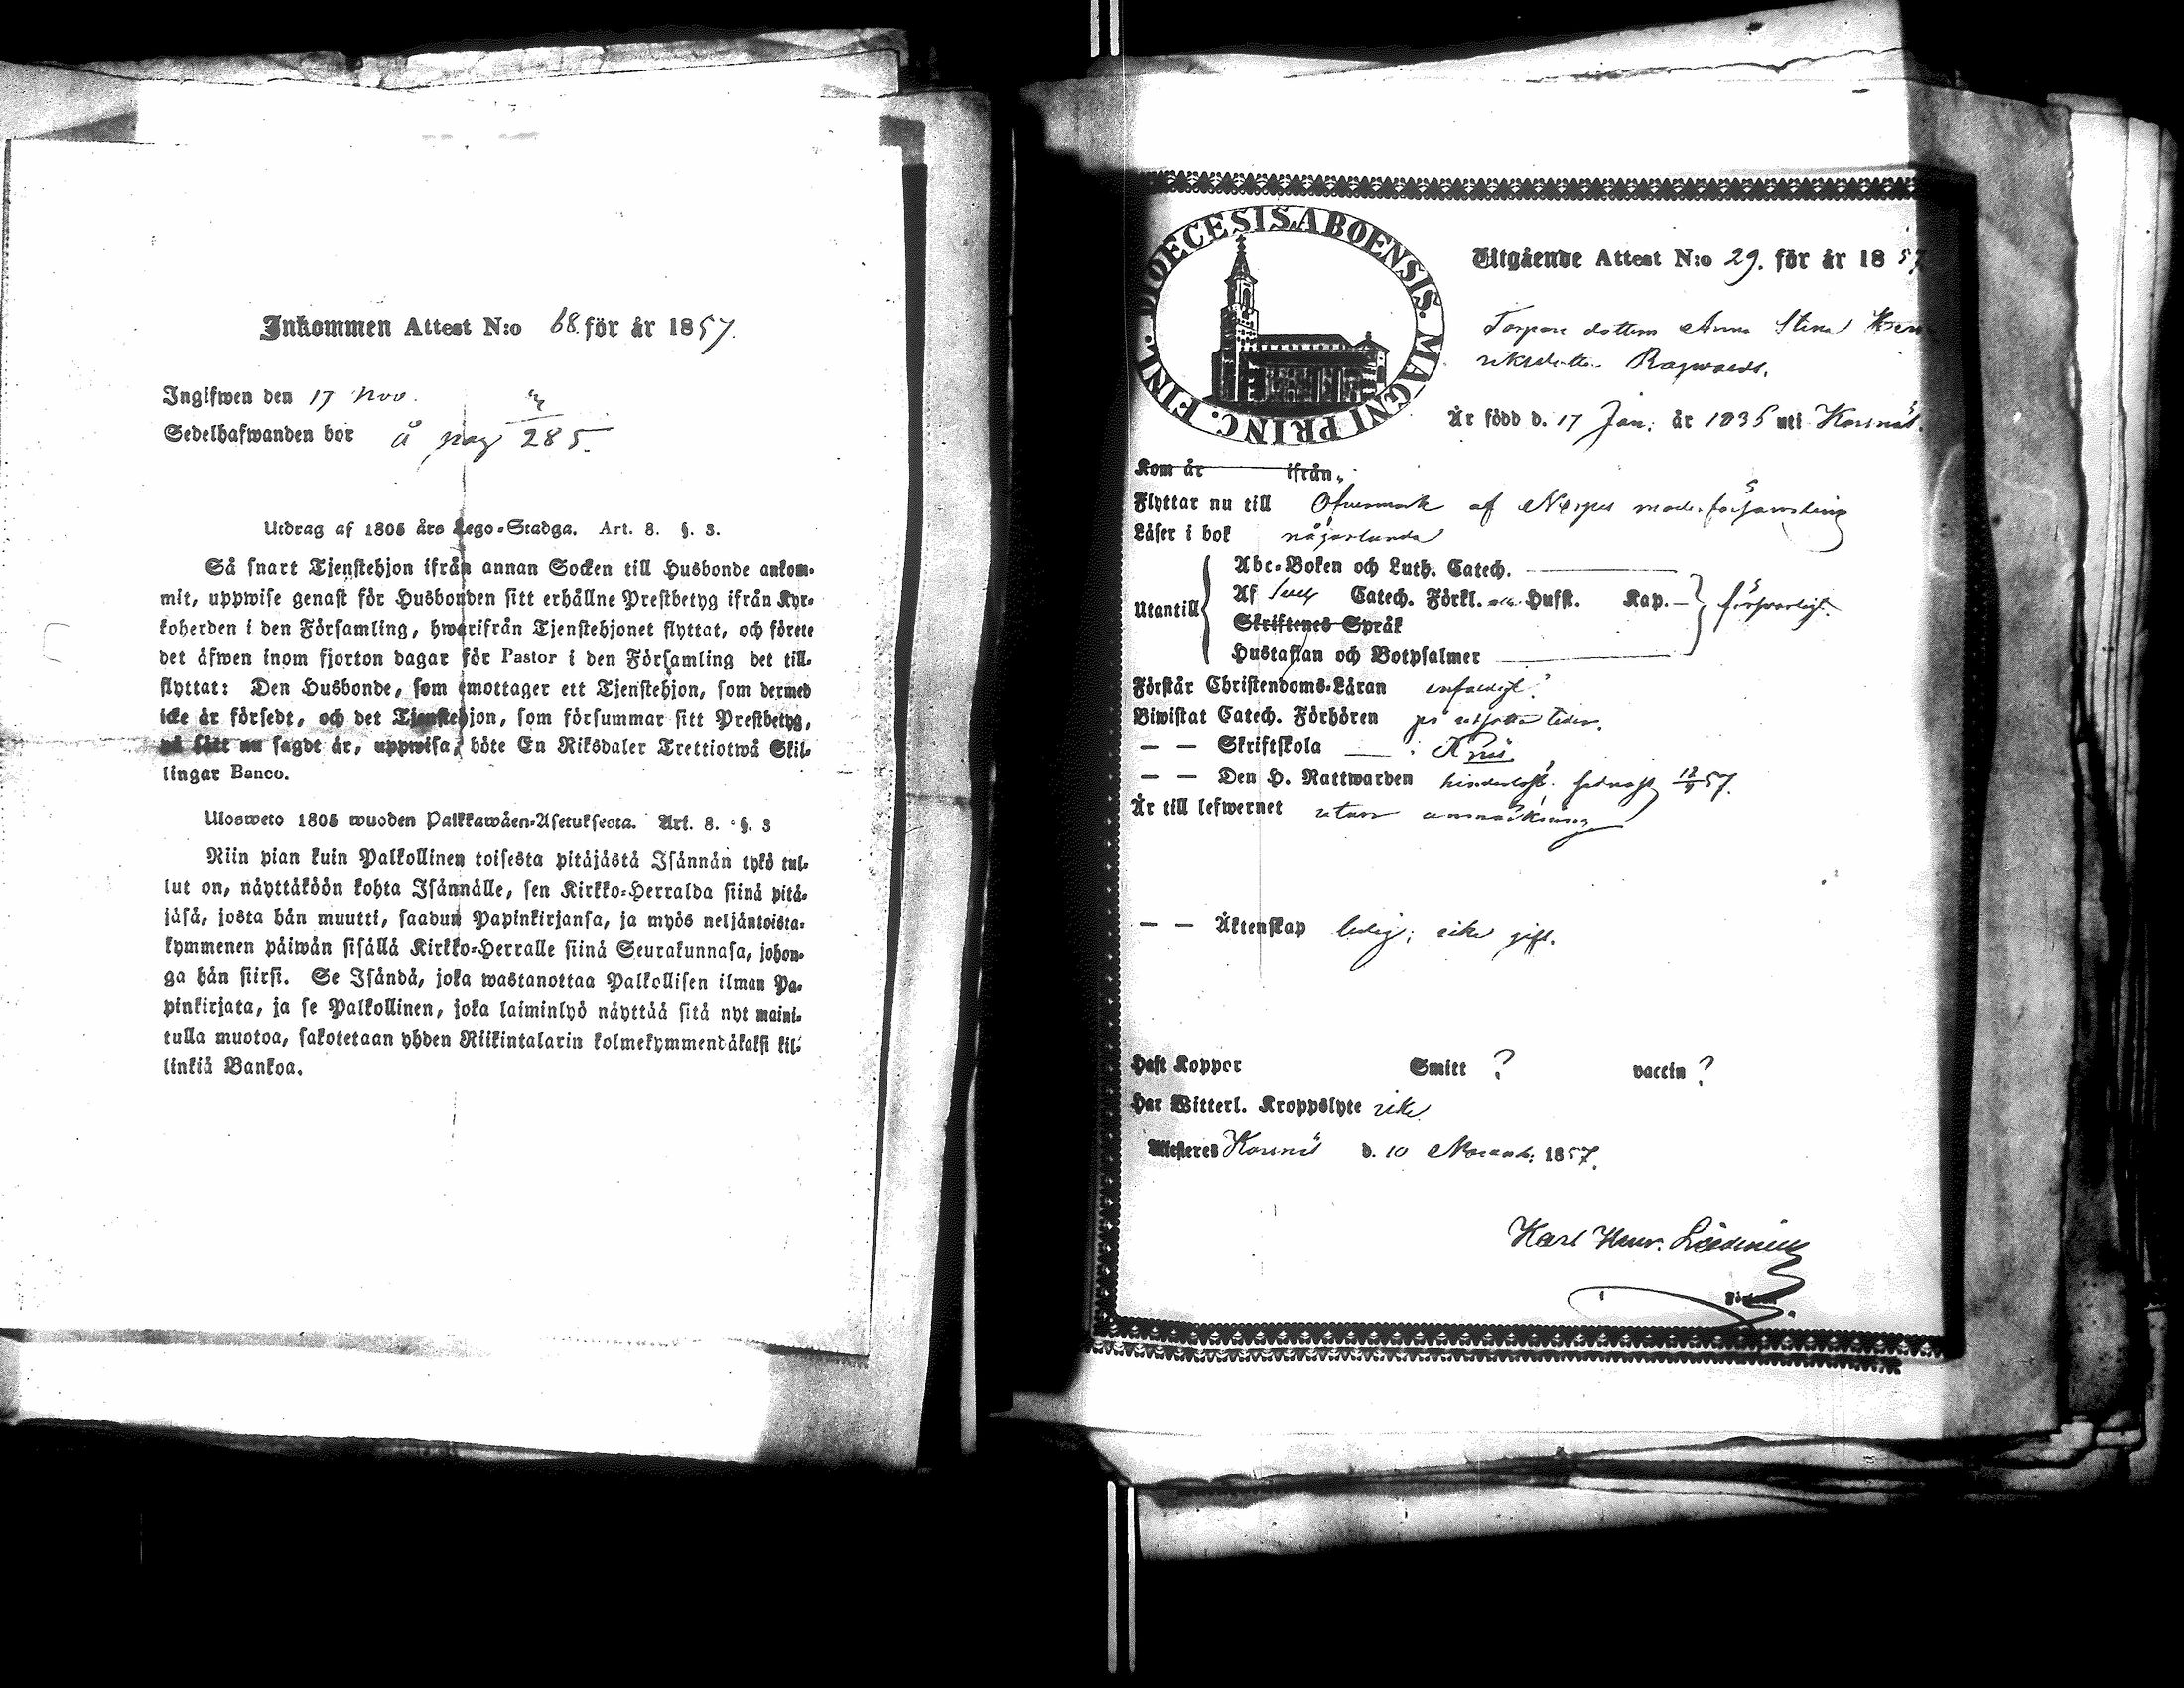 Inkommen Attest N:o 68. för år 1857.
Ingifwen den 17 Nov.
Sedelhafwanden bor å pag 285.
Utdrag af 1805 års Lego-Stadga. Art. 8. §. 3.
Så snart Tjenstehjon ifrån annan Socken till Husbonde ankom-
mit, uppwise genast för Husbonden sitt erhållne Prestbetyg ifrån Kyr-
koherden i den Församling, hwarifrån Tjenstehjonet flyttat, och förete
det äfwen inom fjorton dagar för Pastor i den Församling det till-
flyttat: Den Husbonde, som emottager ett Tjenstehjon, som dermed
icke är försedt, och det Tjenstehjon, som försummar sitt Prestbetyg,
på sätt nu sagdt är, uppwisa, böte En Riksdaler Trettiotwå Skil-
lingar Banco.
Ulosweto 1805 wuoden Palkkawäen-Asetuksesta. Art. 8. §. 3
Niin pian kuin Palkollinen toisesta pitäjästä Isännän tykö tul-
lut on, näyttäköön kohta Isännälle, sen Kirkko-Herralda siinä pitä-
jäsä, josta hän muutti, saadun Papinkirjansa, ja myös neljäntoista-
kymmenen päiwän sisällä Kirkko-Herralle siinä Seurakunnasa, johon-
ga hän siirsi. Se Isändä, joka wastanottaa Palkollisen ilman Pa-
pinkirjata, ja se Palkollinen, joka laiminlyö näyttää sitä nyt maini-
tulla muotoa, sakotetaan yhden Riikintalarin kolmekymmendäkaksi kil-
linkiä Bankoa.
DIOECESIS ABOENSIS. MAGNI PRINC. FINL.
Utgående Attest N:o 29. för år 1857
Torpare dottern Anna Stina Hen
riksdotter Ragwalds.
Är född d. 17 Jan. år 1835 uti Korsnäs.
Kom år ifrån
Flyttar nu till Öfvermark af Nerpes moderförsamling
Läser i bok någorlunda
Utantill
Abc-Boken och Luth. Catech.
Af Catech. Förkl. Hufst. Kap. försvarligt.
Skriftenes Språk
Hustaflan och Botpsalmer
Förstår Christendoms-Läran enfaldigt.
Biwistat Catech. Förhören på utsatta tider.
— — Skriftskola
— — Den H. Nattwarden hinderlöst. sednast 57.
Är till lefwernet utan anmärkning
— — Äktenskap ledig; icke gift.
Haft Koppor Smitt ? vaccin ?
Har Witterl. Kroppslyte icke
Attesteres Korsnäs d. 10 Novemb. 1857.
Karl Henr.